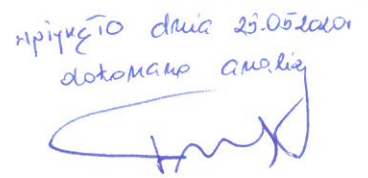 wpłynęło dnia 25.05.2020r
dokonano analizy